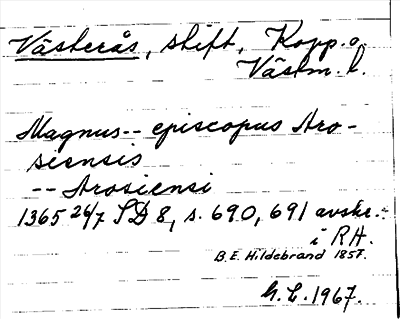 Västerås, stift, Kopp. o.
Västm. l.
Magnus -- episcopus Aro-
siensis
-- Arosiensi
1365 26/7 SD 8, s. 690, 691 avskr.
i RA.
B.E. Hildebrand 1857.
h.L. 1967.